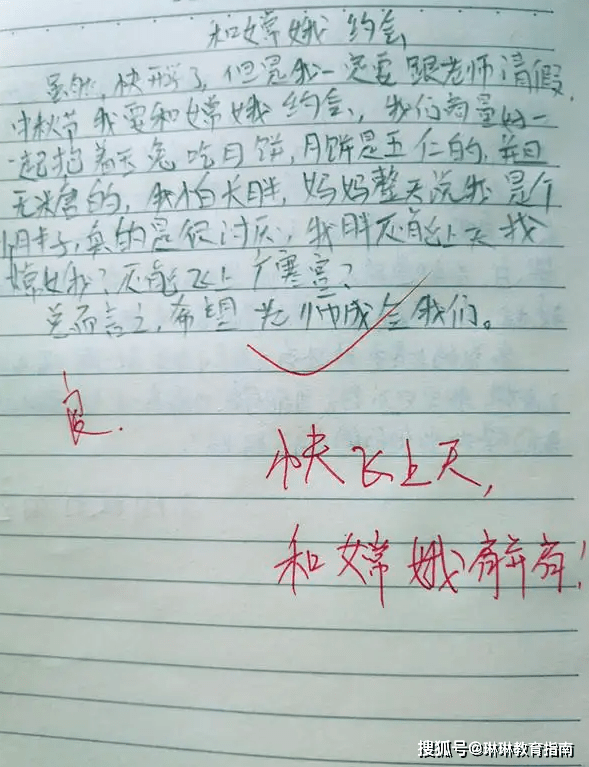 和嫦娥约会
虽然,快开学了,但是我一定要跟老师请假,
中秋节我要和嫦娥约会,我们商量好一
一起抱着玉兔吃月饼,月饼是五仁的,并且
无糖的,我怕长胖,妈妈整天说我是个
胖子,真的是很讨厌,我胖还能上天找
嫦娥?还能飞上广寒宫?
总而言之,希望老师成全我们。
良.
快飞上天,
和嫦娥
搜狐号@琳琳教育指南